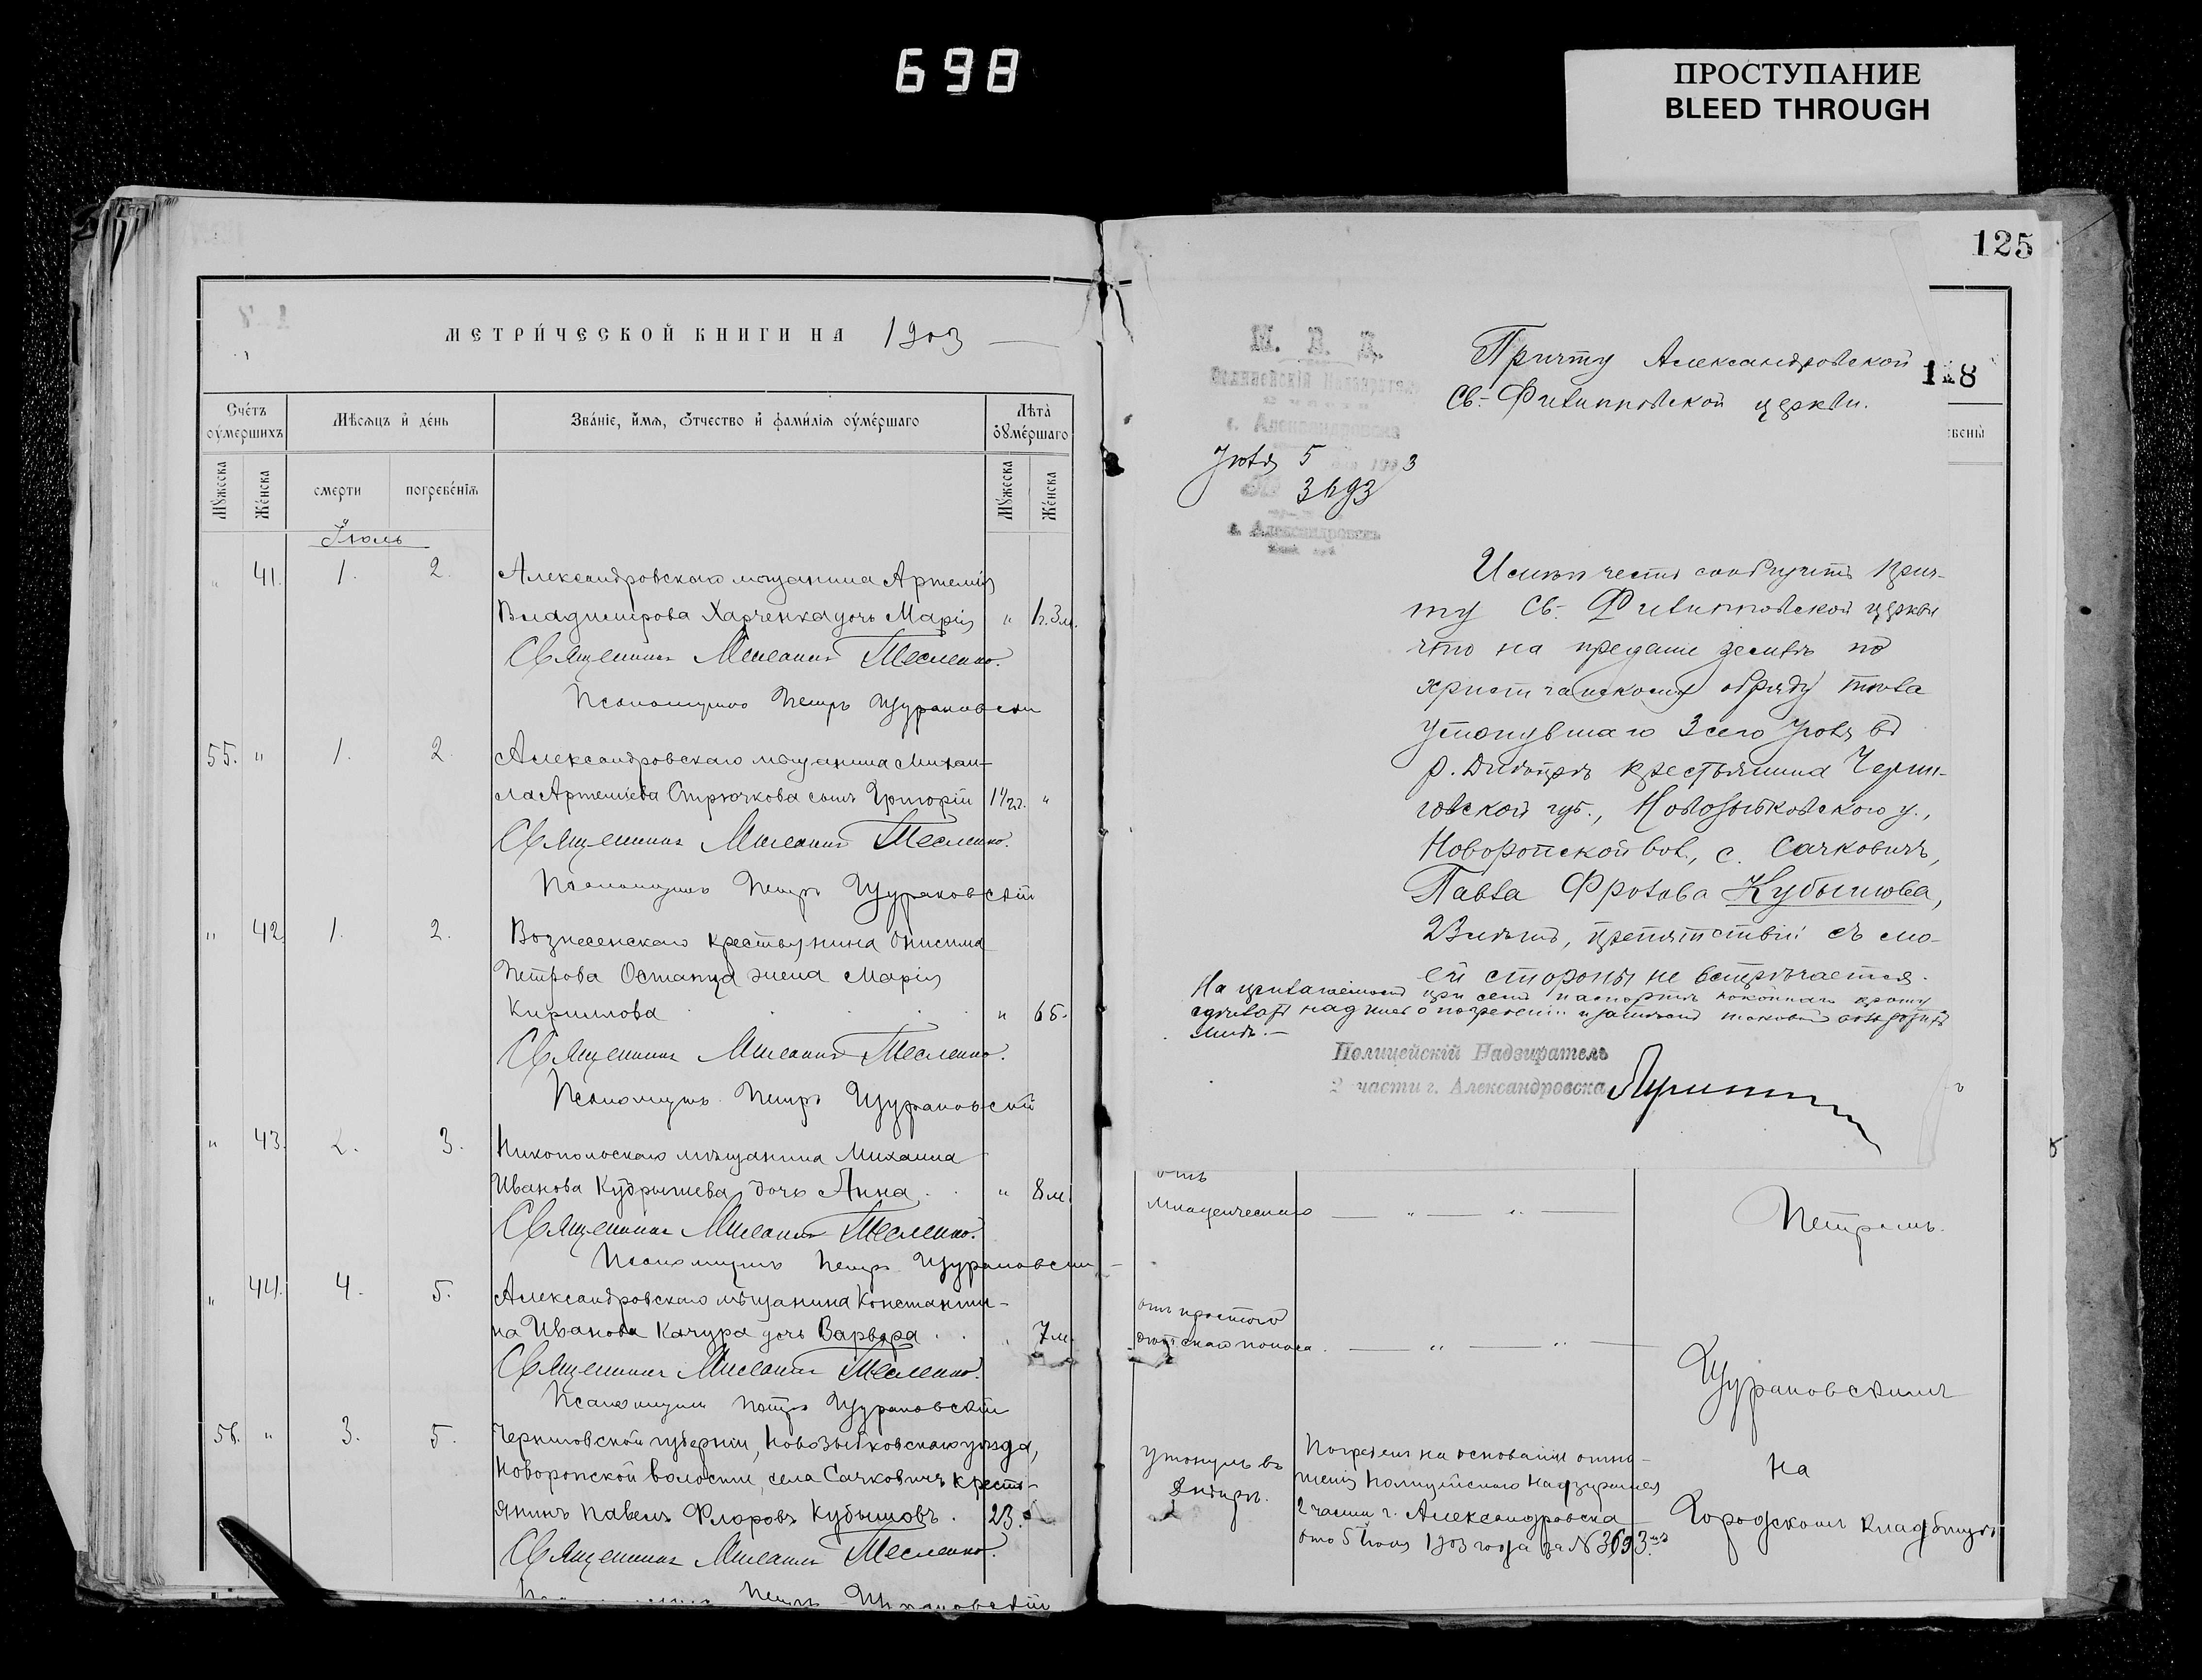 698
ПРОСТУПАНИЕ
BLEED THROUGH
МЕТРИ́ЧЕСКОЙ КНИГИ НА 1903
Сче́тъ оу҆ме́ршихъ
Мѣ́сяцъ и҆ де́нь
Зва́нїе, и҆́мя, ѻ҆́тчество и҆ фами́лїя оу҆ме́ршаго
Лѣта̀ оу҆ме́ршаго
Мꙋ́жеска
Же́нска
смерти
погребе́нїя
Мꙋ́жеска
Же́нска
Іюль
" 41. 1. 2. Александровскаго мѣщанина Артемія
Владимірова Харченка дочь Марія " 1г.3м.
Священникъ Тесленко.
Псаломщикъ Петръ Щурановскій
55. " 1. 2. Александровскаго мѣщанина Михаи-
ла Артемьева Стрючкова сынъ Григорій 1½г. "
Священникъ Тесленко.
Псаломщикъ Петръ Щурановскій
" 42. 1. 2. Вознесенскаго крестьянина Онисима
Петрова Остапца жена Марія
Кириллова " 65.
Священникъ Тесленко.
Псаломщикъ Петръ Щурановскій
" 43. 2. 3. Никопольскаго мѣщанина Михаила
Иванова Кудрышева дочь Анна " 8м.
Священникъ Тесленко.
Псаломщикъ Петръ Щурановскій
" 44. 4. 5. Александровскаго мѣщанина Константи-
на Иванова Качура дочь Варвара 7м.
Священникъ Тесленко.
Псаломщикъ Петръ Щурановскій
56. " 3. 5. Черниговской губерніи, Новозыбковскаго уѣзда,
Новоропской волости, села Сачковичъ кресть-
янинъ Павелъ Флоровъ Кубышовъ. 23.
Священникъ Тесленко.
Петръ Щурановскій
125
118
М. В. Д.
Полицейскій Надзиратель
г. Александровска
Іюля 5 1903
3693
г. Александровскъ
Причту Александровской
Св.-Филипповской церкви.
Имѣю честь сообщить Прич-
ту Св.-Филипповской церкви
что на преданіе землѣ по
христіанскому обряду тѣла
утонувшаго 3 сего Іюля въ
р. Днѣпрѣ крестьянина Черни-
говской губ., Новозыбковскаго у.,
Новоропской вол., с. Сачковичъ,
Павла Фролова Кубышова,
23 лѣтъ, препятствій съ мо-
ей стороны не встрѣчается.
На прилагаемомъ при семъ паспортѣ прошу
сдѣлать надпись о погребеніи и таковой возвратить
мнѣ.—
Полицейскій Надзиратель
2 части г. Александровска
отъ
младенческаго — " — " —
Петромъ
отъ простого
дѣтскаго поноса. — " — " —
Щурановскимъ
утонулъ въ
Днѣпрѣ.
Погребенъ на основаніи отно-
шенія Полицейскаго Надзирателя
2 части г. Александровска
отъ 5 Іюля 1903 года за № 3693.
на
Городскомъ кладбищѣ